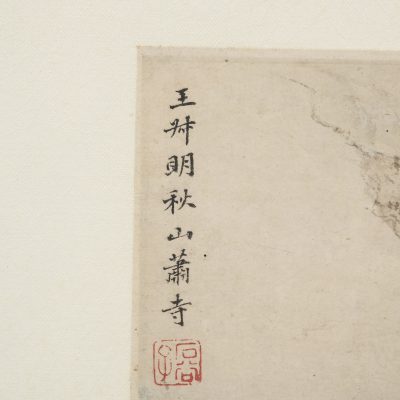 王叔明秋山蕭寺